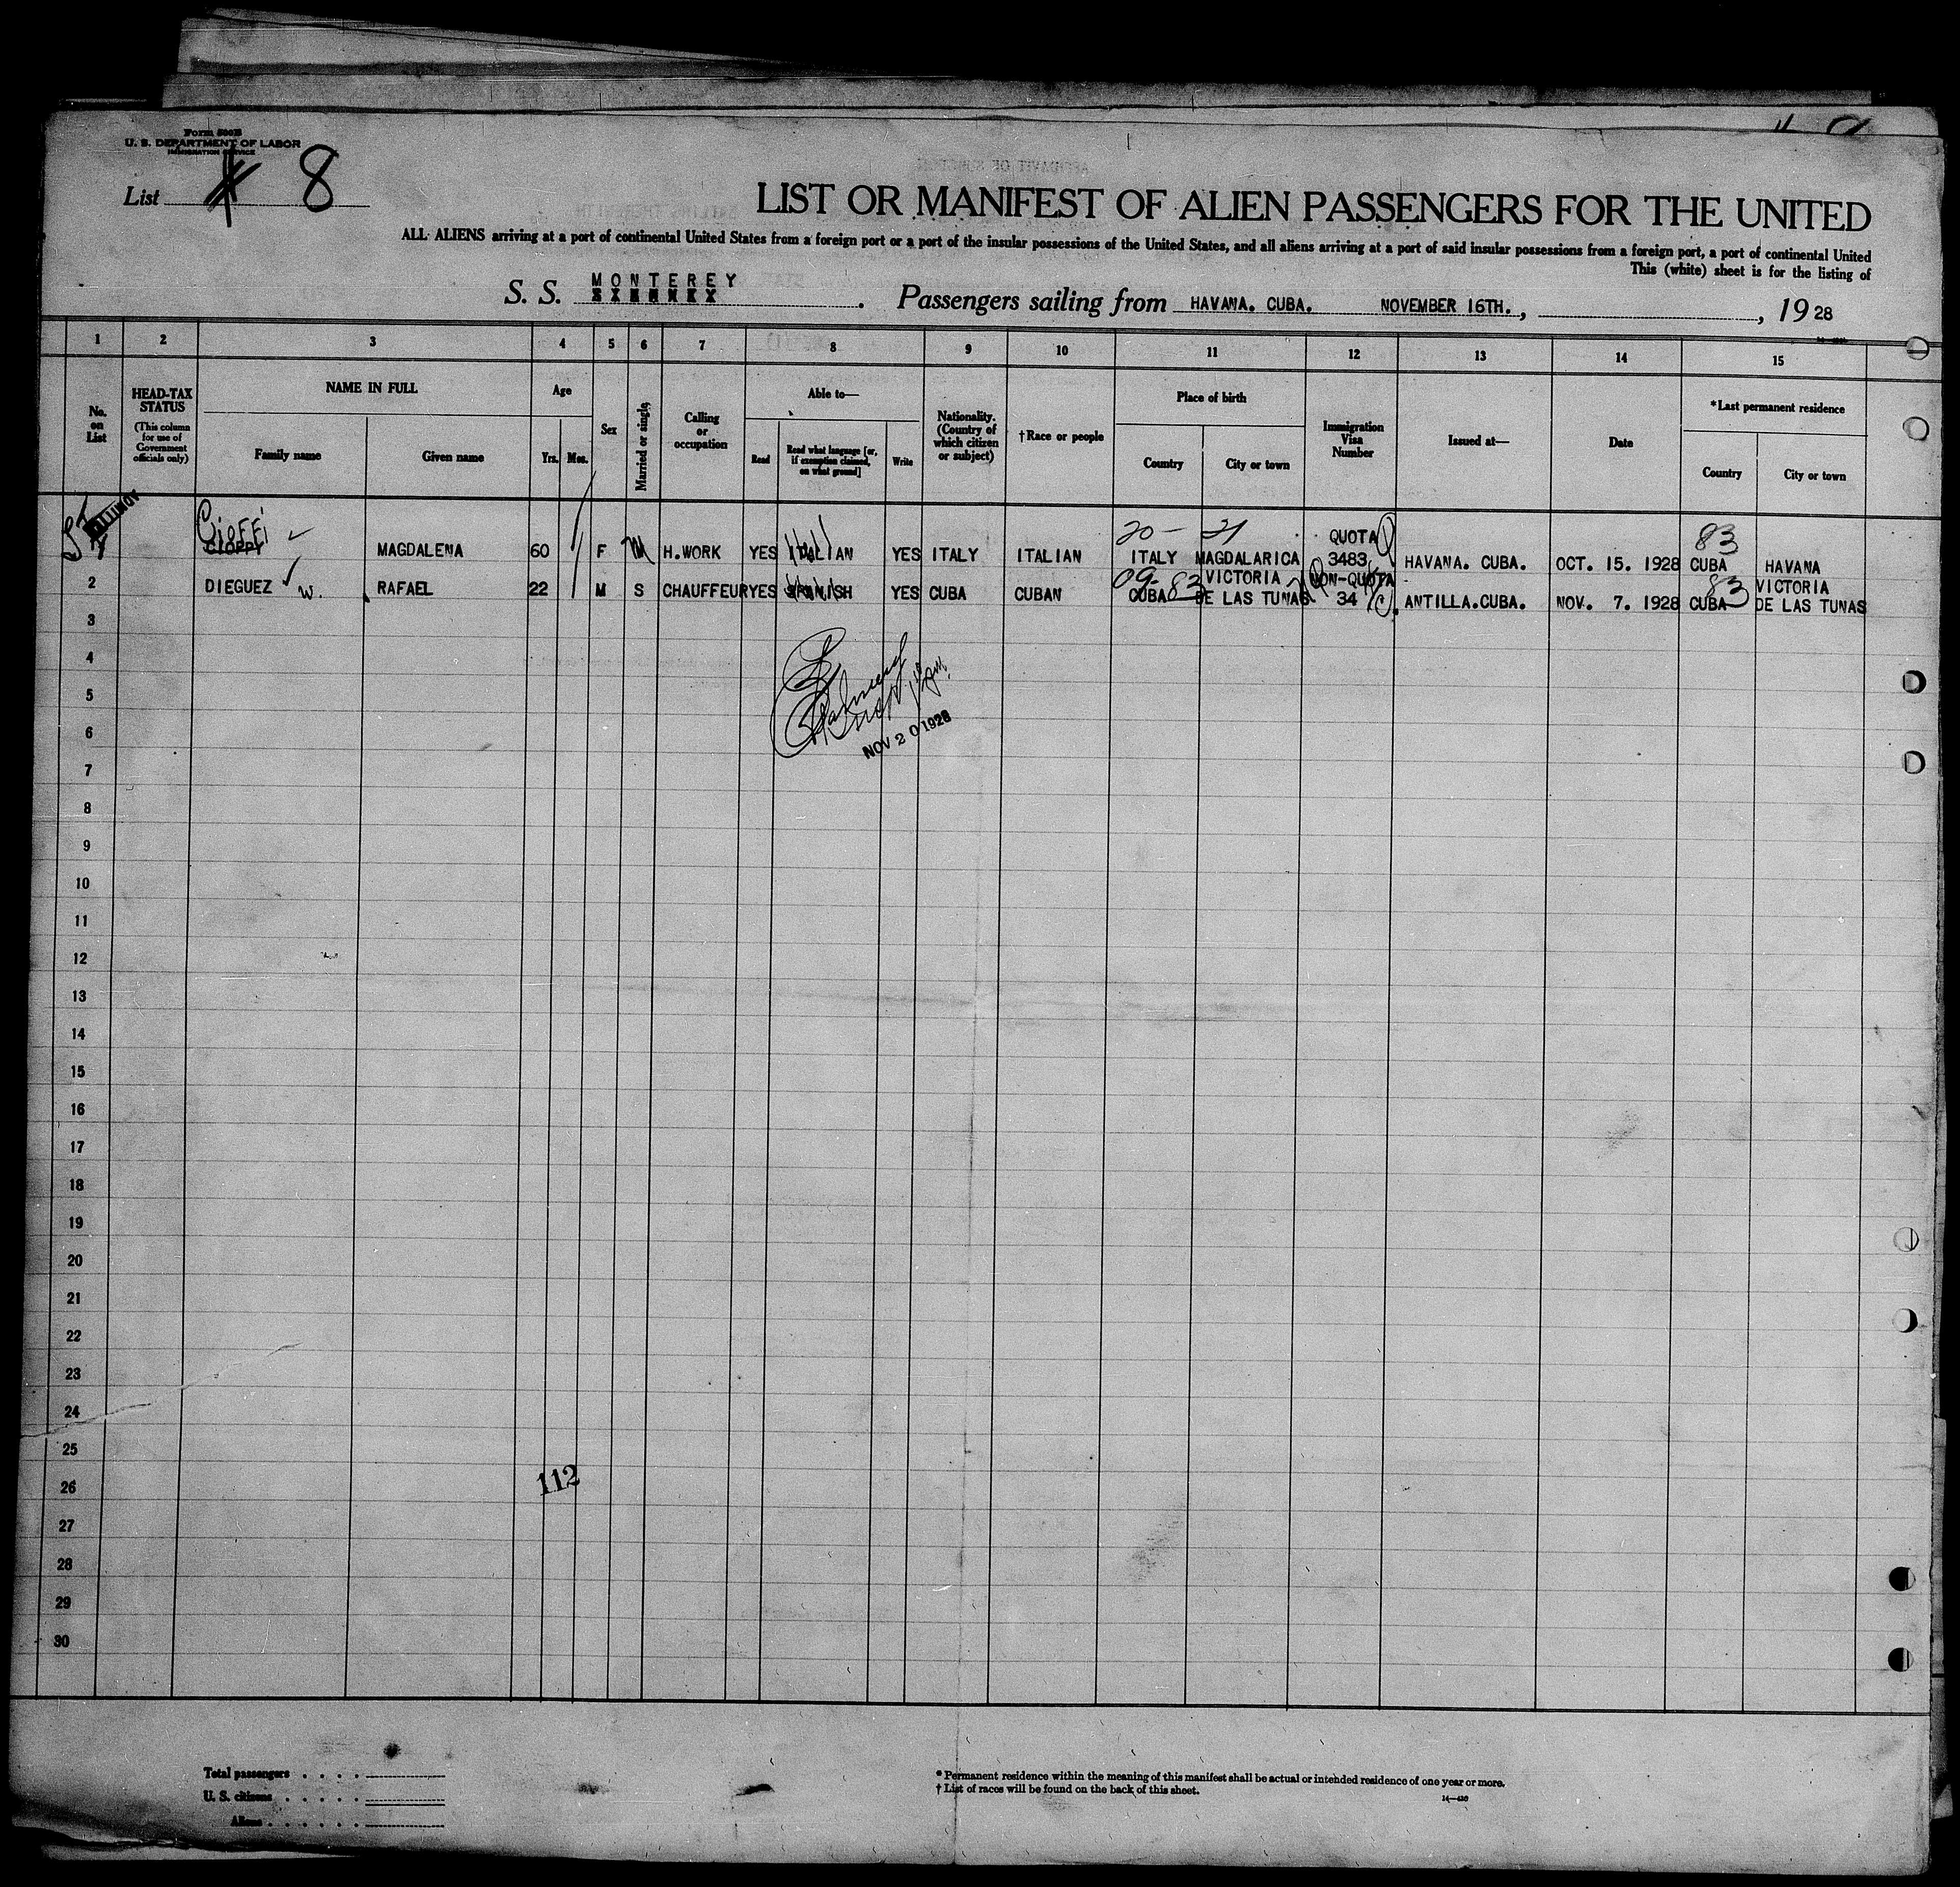 Form 500B
U. S. DEPARTMENT OF LABOR
IMMIGRATION SERVICE
List 8
LIST OR MANIFEST OF ALIEN PASSENGERS FOR THE UNITED
ALL ALIENS arriving at a port of continental United States from a foreign port or a port of the insular possessions of the United States, and all aliens arriving at a port of said insular possessions from a foreign port, a port of continental United
This (white) sheet is for the listing of
S. S. MONTEREY . Passengers sailing from HAVANA. CUBA. NOVEMBER 16TH. , , 19 28
1 2 3 4 5 6 7 8 9 10 11 12 13 14 15
No. on List
HEAD-TAX STATUS
(This column for use of Government officials only)
NAME IN FULL
Family name Given name
Age
Yrs. Mos.
Sex
Married or single
Calling or occupation
Able to—
Read Read what language [or, if exemption claimed, on what ground] Write
Nationality. (Country of which citizen or subject)
†Race or people
Place of birth
Country City or town
Immigration Visa Number
Issued at—
Date
*Last permanent residence
Country City or town
Cioffi 20 - 21 QUOTA 83
CIOPPY MAGDALENA 60 F M H.WORK YES ITALIAN YES ITALY ITALIAN ITALY MAGDALARICA 3483 HAVANA. CUBA. OCT. 15. 1928 CUBA HAVANA
09- 83 VICTORIA NON-QUOTA 83 VICTORIA
2 DIEGUEZ W. RAFAEL 22 M S CHAUFFEUR YES SPANISH YES CUBA CUBAN CUBA DE LAS TUNAS 34 ANTILLA.CUBA. NOV. 7. 1928 CUBA DE LAS TUNAS
3
4
5
6
NOV 20 1928
7
8
9
10
11
12
13
14
15
16
17
18
19
20
21
22
23
24
25
26
112
27
28
29
30
Total passengers . . . .
U. S. citizens . . . . .
Aliens . . . . . .
* Permanent residence within the meaning of this manifest shall be actual or intended residence of one year or more.
† List of races will be found on the back of this sheet.
14—430